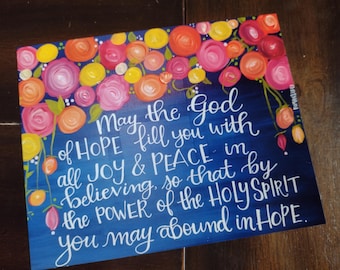 May the God
of HOPE fill you with
all JOY & PEACE in
believing, so that by
the POWER of the HOLY SPIRIT
you may abound in HOPE.